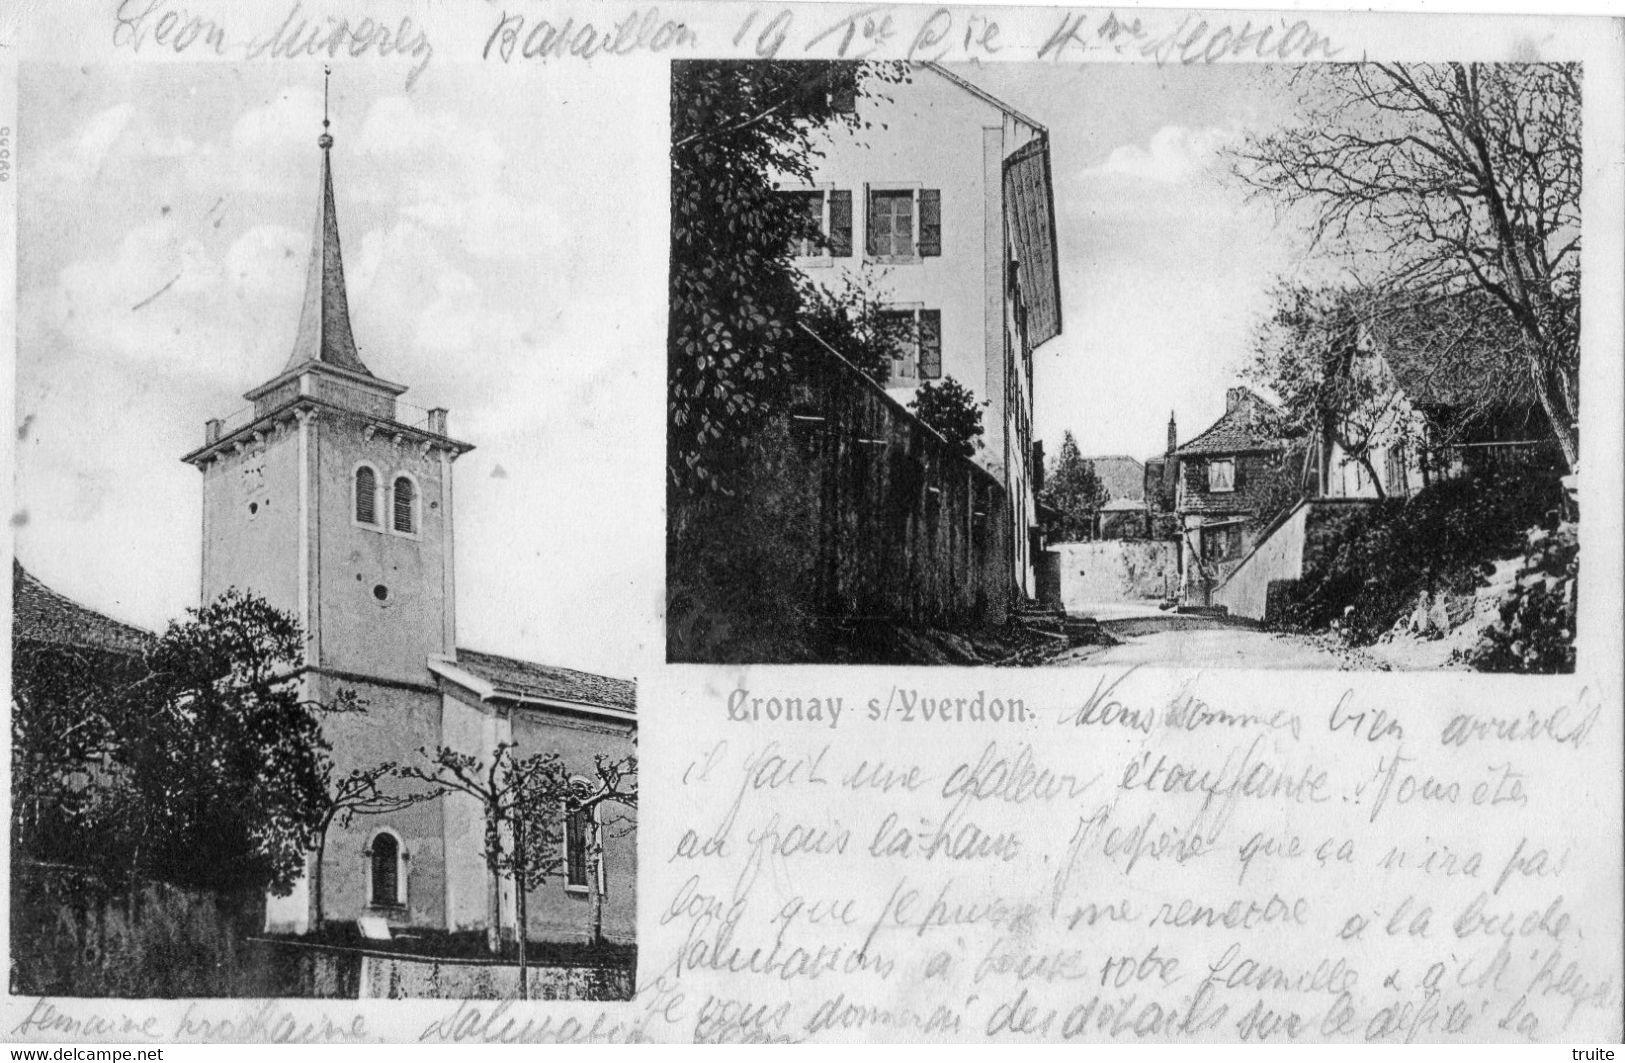 Léon Bataillon 19 1re Cie 4me Section
69555
Cronay s/Yverdon.
Nous sommes bien arrivés
il fait une chaleur étouffante. Vous êtes
au frais là-haut. J'espère que ça n'ira pas
long que je puisse me remettre à la buche.
Salutations à toute votre famille & à M.
Je vous donnerai des détails sur le défilé la
semaine prochaine. Salutations
www.delcampe.net
truite